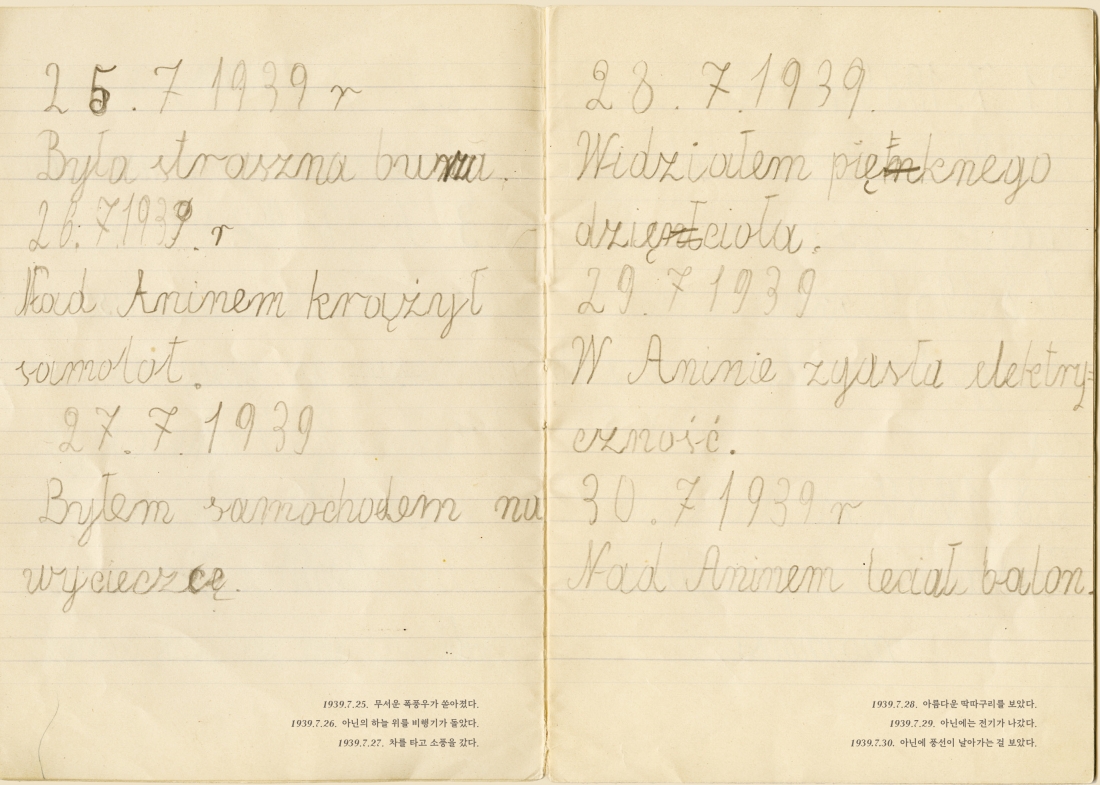 25.7 1939 r
Była straszna burza.
26.7.1939. r
Nad Aninem krążył
samolot.
27.7.1939
Byłem samochodem na
wycieczcę.
1939.7.25. 무서운 폭풍우가 쏟아졌다.
1939.7.26. 아닌의 하늘 위를 비행기가 돌았다.
1939.7.27. 차를 타고 소풍을 갔다.
28.7.1939.
Widziałem pięknego
dzięcioła.
29.7 1939
W Aninie zgasła elektry=
czność.
30.7 1939 r
Nad Aninem leciał balon.
1939.7.28. 아름다운 딱따구리를 보았다.
1939.7.29. 아닌에는 전기가 나갔다.
1939.7.30. 아닌에 풍선이 날아가는 걸 보았다.